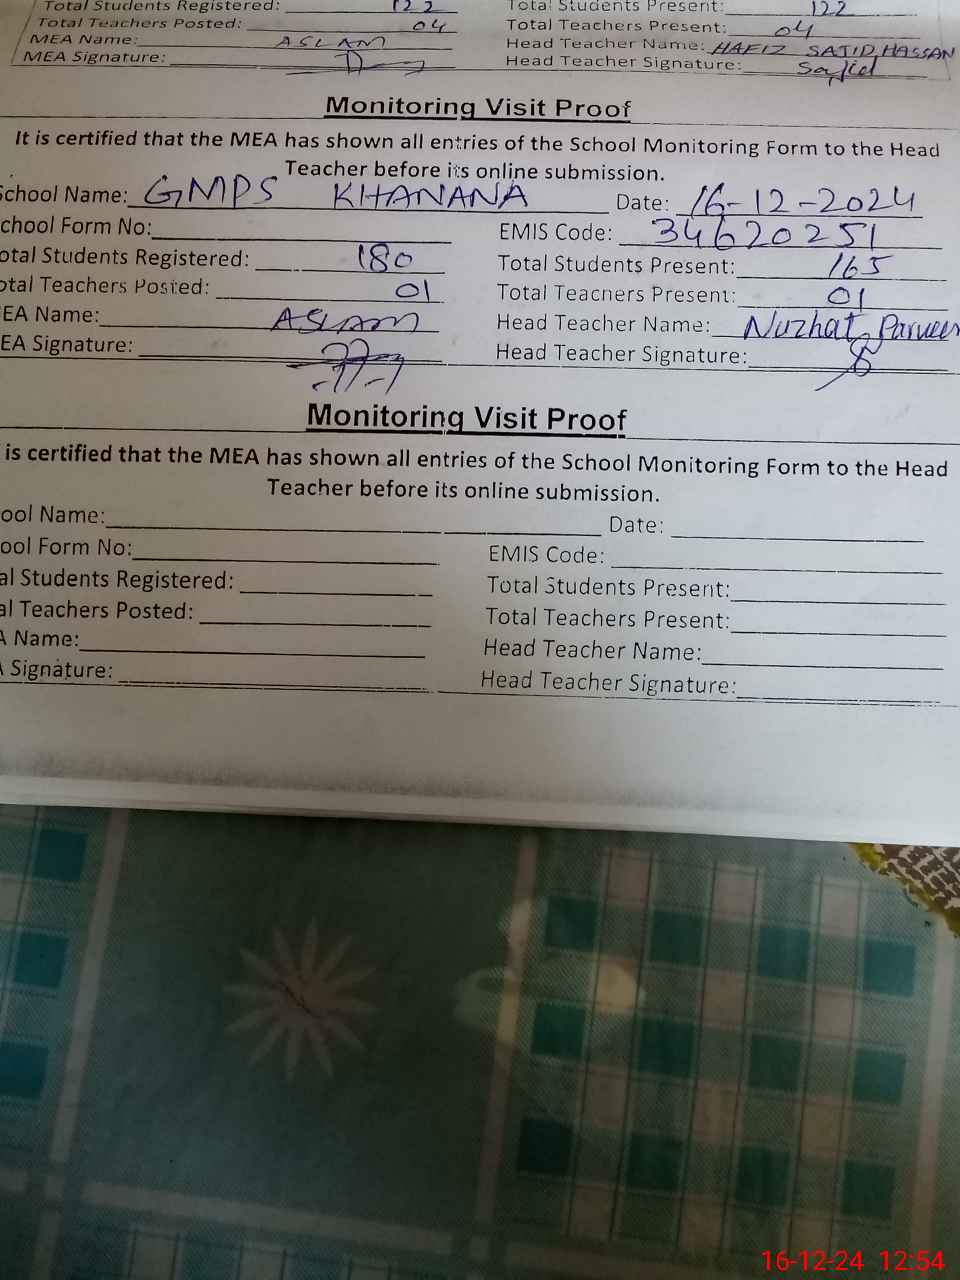 Total Students Registered: 122 Total Students Present: 122
Total Teachers Posted: 04 Total Teachers Present: 04
MEA Name: ASLAM Head Teacher Name: HAFIZ SAJID HASSAN
MEA Signature: Head Teacher Signature: Sajid
Monitoring Visit Proof
It is certified that the MEA has shown all entries of the School Monitoring Form to the Head
Teacher before its online submission.
School Name: GMPS KHANANA Date: 16-12-2024
chool Form No: EMIS Code: 34620251
otal Students Registered: 180 Total Students Present: 165
otal Teachers Posted: 01 Total Teachers Present: 01
EA Name: ASLAM Head Teacher Name: Nuzhat Parveen
EA Signature: Head Teacher Signature:
Monitoring Visit Proof
is certified that the MEA has shown all entries of the School Monitoring Form to the Head
Teacher before its online submission.
ool Name: Date:
ool Form No: EMIS Code:
al Students Registered: Total Students Present:
al Teachers Posted: Total Teachers Present:
A Name: Head Teacher Name:
A Signature: Head Teacher Signature:
16-12-24 12:54